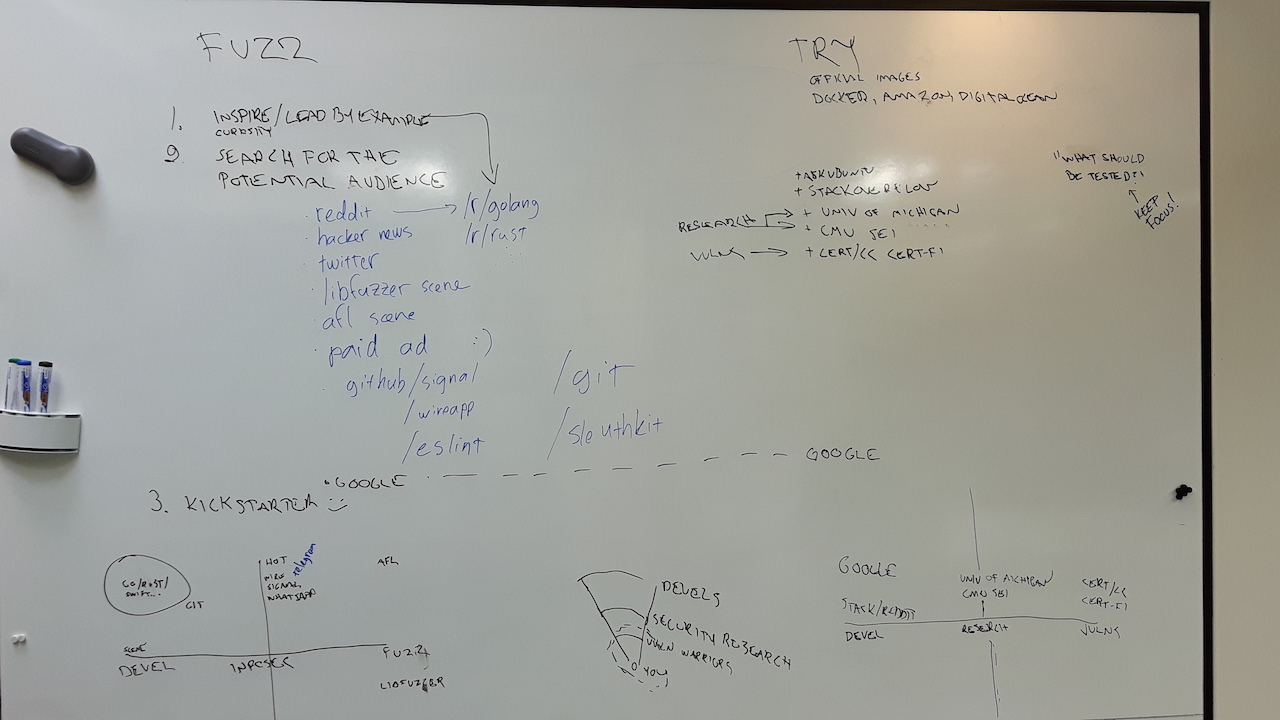 FUZZ
1. INSPIRE/LEAD BY EXAMPLE
CURIOSITY
2. SEARCH FOR THE
POTENTIAL AUDIENCE
· reddit → /r/golang
· hacker news /r/rust
· twitter
· libfuzzer scene
· afl scene
· paid ad :)
· github/signal /git
/wireapp
/eslint /sleuthkit
• GOOGLE - - - - - - - - GOOGLE
3. KICKSTARTER :)
TRY
OFFICIAL IMAGES
DOCKER, AMAZON, DIGITALOCEAN
+ ASKUBUNTU
+ STACKOVERFLOW
RESEARCH → + UNIV OF MICHIGAN
→ + CMU SEI
VULNS → + CERT/CC CERT-FI
"WHAT SHOULD
BE TESTED?"
KEEP
FOCUS!
GO/RUST/
SWIFT...
GIT
HOT
WIRE
SIGNAL
WHATSAPP
telegram
AFL
SCENE
DEVEL INFOSEC FUZZ
LIBFUZZER
DEVELS
SECURITY RESEARCH
VULN WARRIORS
YOU
GOOGLE
UNIV OF MICHIGAN
CMU SEI
CERT/CC
CERT-FI
STACK/REDDIT
DEVEL RESEARCH VULNS